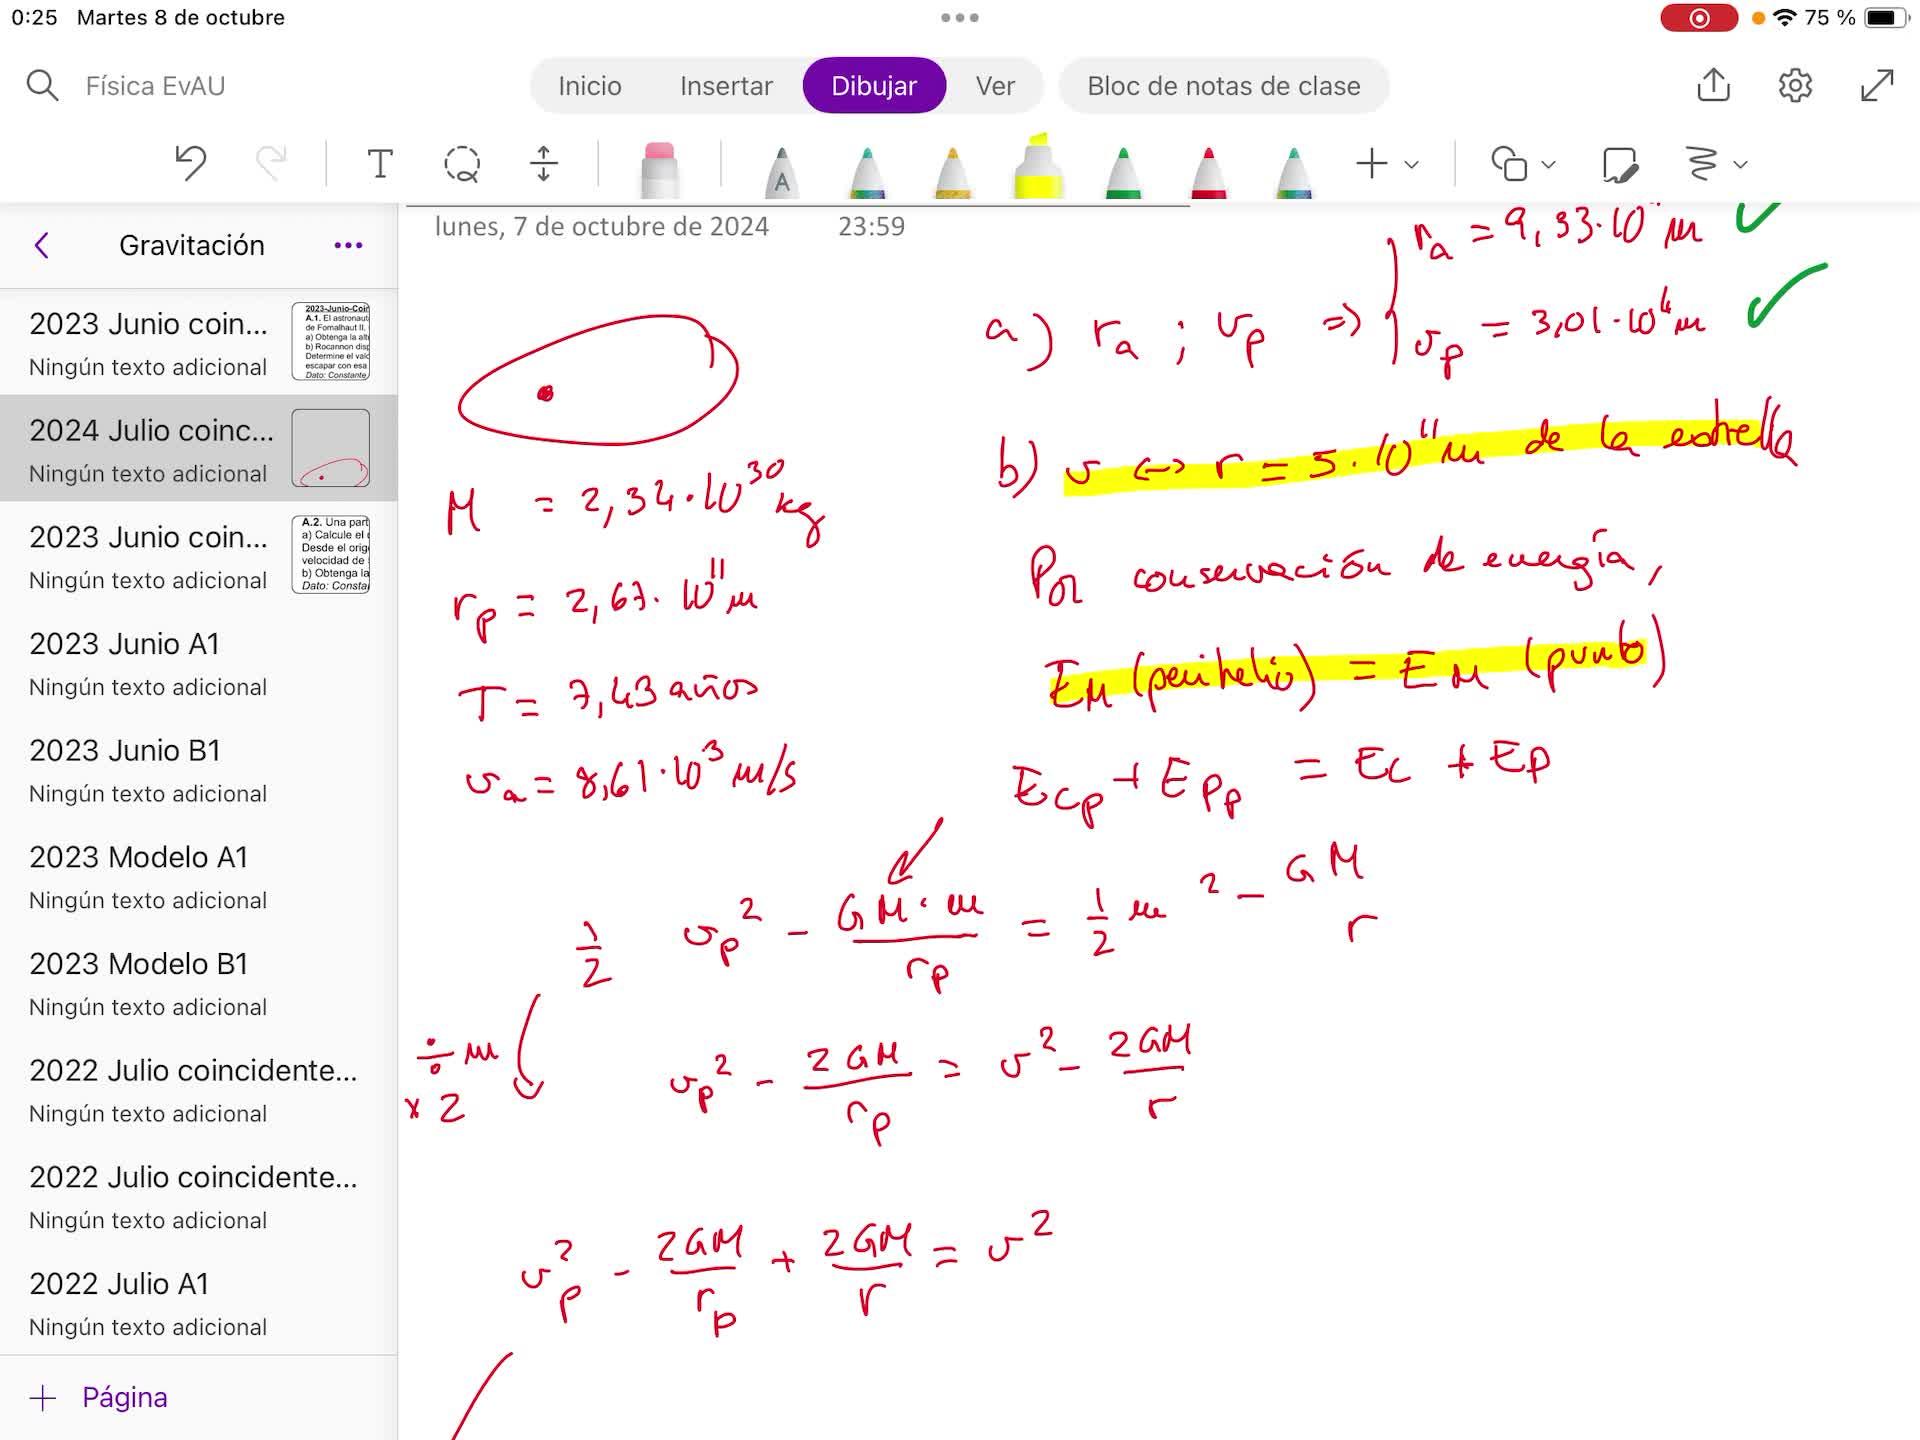 0:25 Martes 8 de octubre
75 %
Física EvAU
Inicio Insertar Dibujar Ver Bloc de notas de clase
T
A
Gravitación
2023 Junio coin...
Ningún texto adicional
2023-Junio-Coin
A.1. El astronaut
de Fomalhaut II.
a) Obtenga la alt
b) Rocannon disp
Determine el valo
escapar con esa
Dato: Constante
2024 Julio coinc...
Ningún texto adicional
2023 Junio coin...
Ningún texto adicional
A.2. Una part
a) Calcule el
Desde el orig
velocidad de
b) Obtenga la
Dato: Consta
2023 Junio A1
Ningún texto adicional
2023 Junio B1
Ningún texto adicional
2023 Modelo A1
Ningún texto adicional
2023 Modelo B1
Ningún texto adicional
2022 Julio coincidente...
Ningún texto adicional
2022 Julio coincidente...
Ningún texto adicional
2022 Julio A1
Ningún texto adicional
+ Página
lunes, 7 de octubre de 2024 23:59
M = 2,34·10³⁰ kg
r_p = 2,67·10¹¹ m
T = 7,43 años
v_a = 8,61·10³ m/s
a) r_a ; v_p ⇒ { r_a = 9,33·10¹¹ m ✓
v_p = 3,01·10⁴ m ✓
b) v ↔ r = 5·10¹¹ m de la estrella
Por conservación de energía,
E_M (perihelio) = E_M (punto)
E_Cp + E_Pp = E_C + E_P
1/2 v_p² - GM·m/r_p = 1/2 m ² - GM r
÷ m
× 2
v_p² - 2GM/r_p = v² - 2GM/r
v_p² - 2GM/r_p + 2GM/r = v²